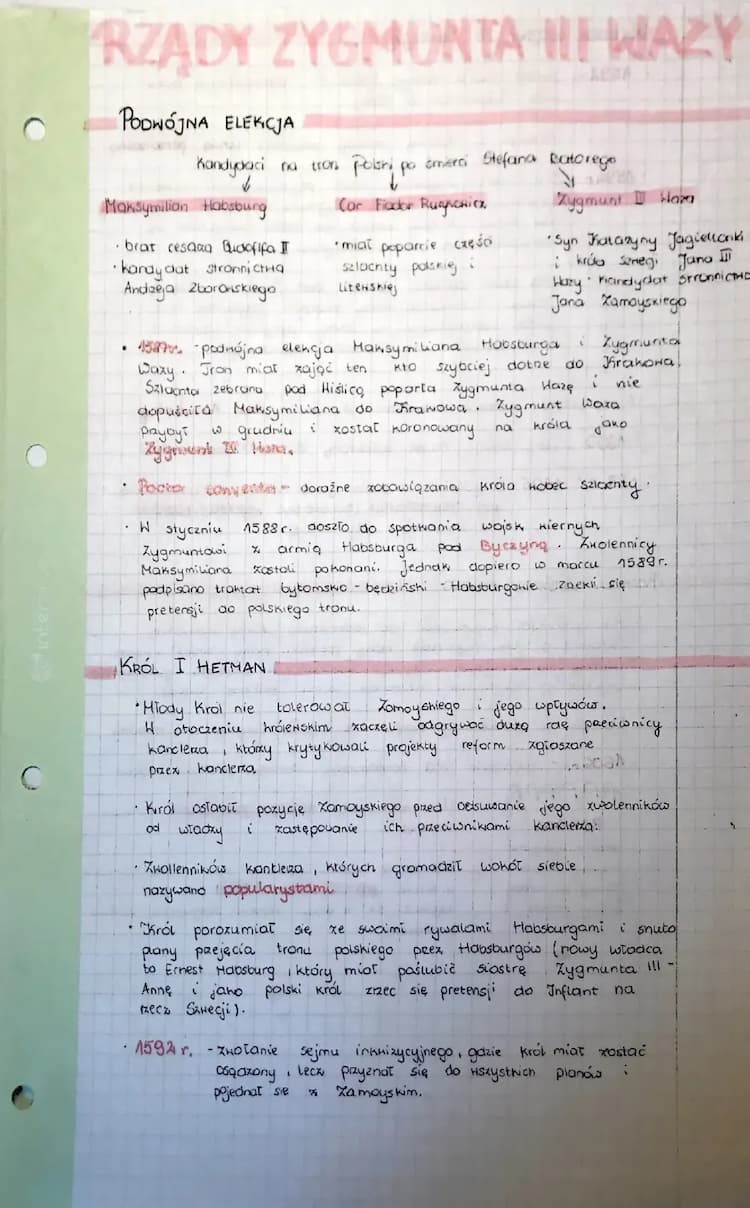 RZĄDY ZYGMUNTA III WAZY
PODWÓJNA ELEKCJA
Kandydaci na tron Polski po śmierci Stefana Batorego
Maksymilian Habsburg
Car Fiodor Rurykowicz
Zygmunt III Waza
· brat cesarza Rudolfa II
· kandydat stronnictwa
Andrzeja Zborowskiego
· miał poparcie część
szlachty polskiej i
litewskiej
· Syn Katarzyny Jagiellonki
i króla Szwecji Jana III
Wazy · Kandydat stronnictwa
Jana Zamoyskiego
• 1587r. - podwójna elekcja Maksymiliana Habsburga i Zygmunta
Wazy. Tron miał zająć ten kto szybciej dotrze do Krakowa.
Szlachta zebrana pod Wiślicą poparła Zygmunta Wazę i nie
dopuściła Maksymiliana do Krakowa. Zygmunt Waza
przybył w grudniu i został koronowany na króla jako
Zygmunt III Waza.
· Pacta conventa - doraźne zobowiązania króla wobec szlachty.
· W styczniu 1588r. doszło do spotkania wojsk wiernych
Zygmuntowi z armią Habsburga pod Byczyną. Zwolennicy
Maksymiliana zostali pokonani. Jednak dopiero w marcu 1589r.
podpisano traktat bytomsko - będziński - Habsburgowie zrzekli się
pretensji do polskiego tronu.
KRÓL I HETMAN
· Młody Król nie tolerował Zamoyskiego i jego wpływów.
W otoczeniu królewskim zaczęli odgrywać dużą rolę przeciwnicy
kanclerza, którzy krytykowali projekty reform zgłaszane
przez kanclerza.
· Król osłabił pozycję Zamoyskiego przed odsuwanie jego zwolenników
od władzy i zastępowanie ich przeciwnikami kanclerza.
· Zwollenników kanclerza, których gromadził wokół siebie,
nazywano popularystami
· Król porozumiał się ze swoimi rywalami Habsburgami i snuto
plany przejęcia tronu polskiego przez Habsburgów (nowy władca
to Ernest Habsburg, który miał poślubić siostrę Zygmunta III -
Annę i jako polski król zrzec się pretensji do Inflant na
rzecz Szwecji).
· 1592 r. - zwołanie sejmu inkwizycyjnego, gdzie król miał zostać
osądzony, lecz przyznał się do wszystkich planów i
pojednał się z Zamoyskim.